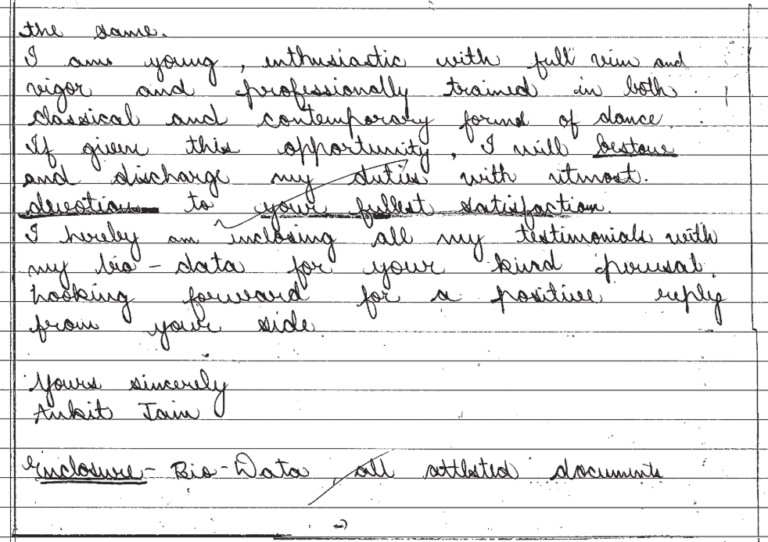 the same.
I am young, enthusiastic with full vim and
vigor and professionally trained in both
classical and contemporary forms of dance.
If given this opportunity, I will bestow
and discharge my duties with utmost.
devotion to your fullest satisfaction.
I hereby am inclosing all my testimonials with
my bio-data for your kind perusal.
Looking forward for a positive reply
from your side
Yours sincerely
Ankit Jain
Enclosure - Bio-Data, all attested documents